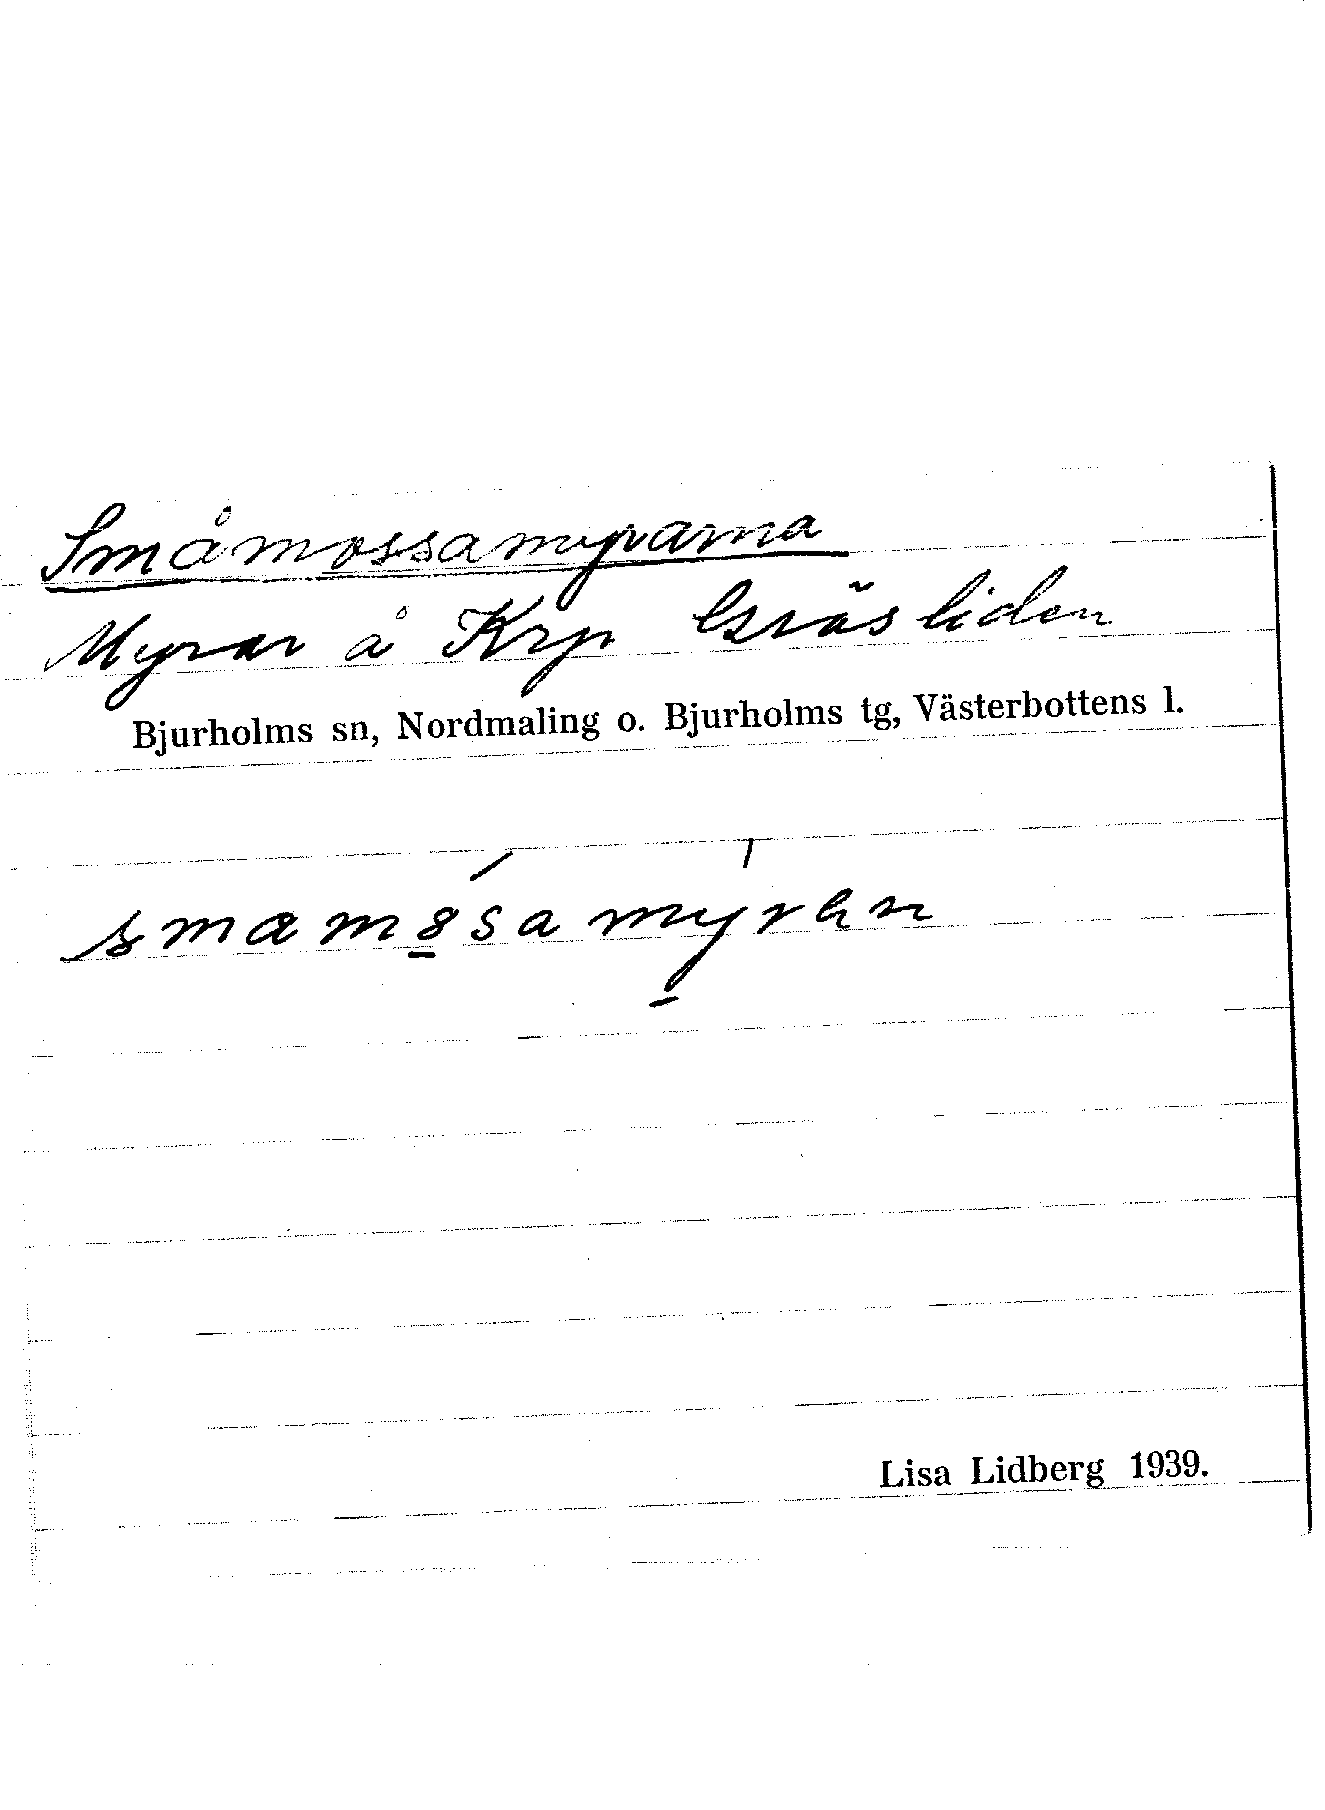 Småmossamyrarna
Myrar å Krp Gräsliden
Bjurholms sn, Nordmaling o. Bjurholms tg, Västerbottens l.
smamósamýrɐn
Lisa Lidberg 1939.